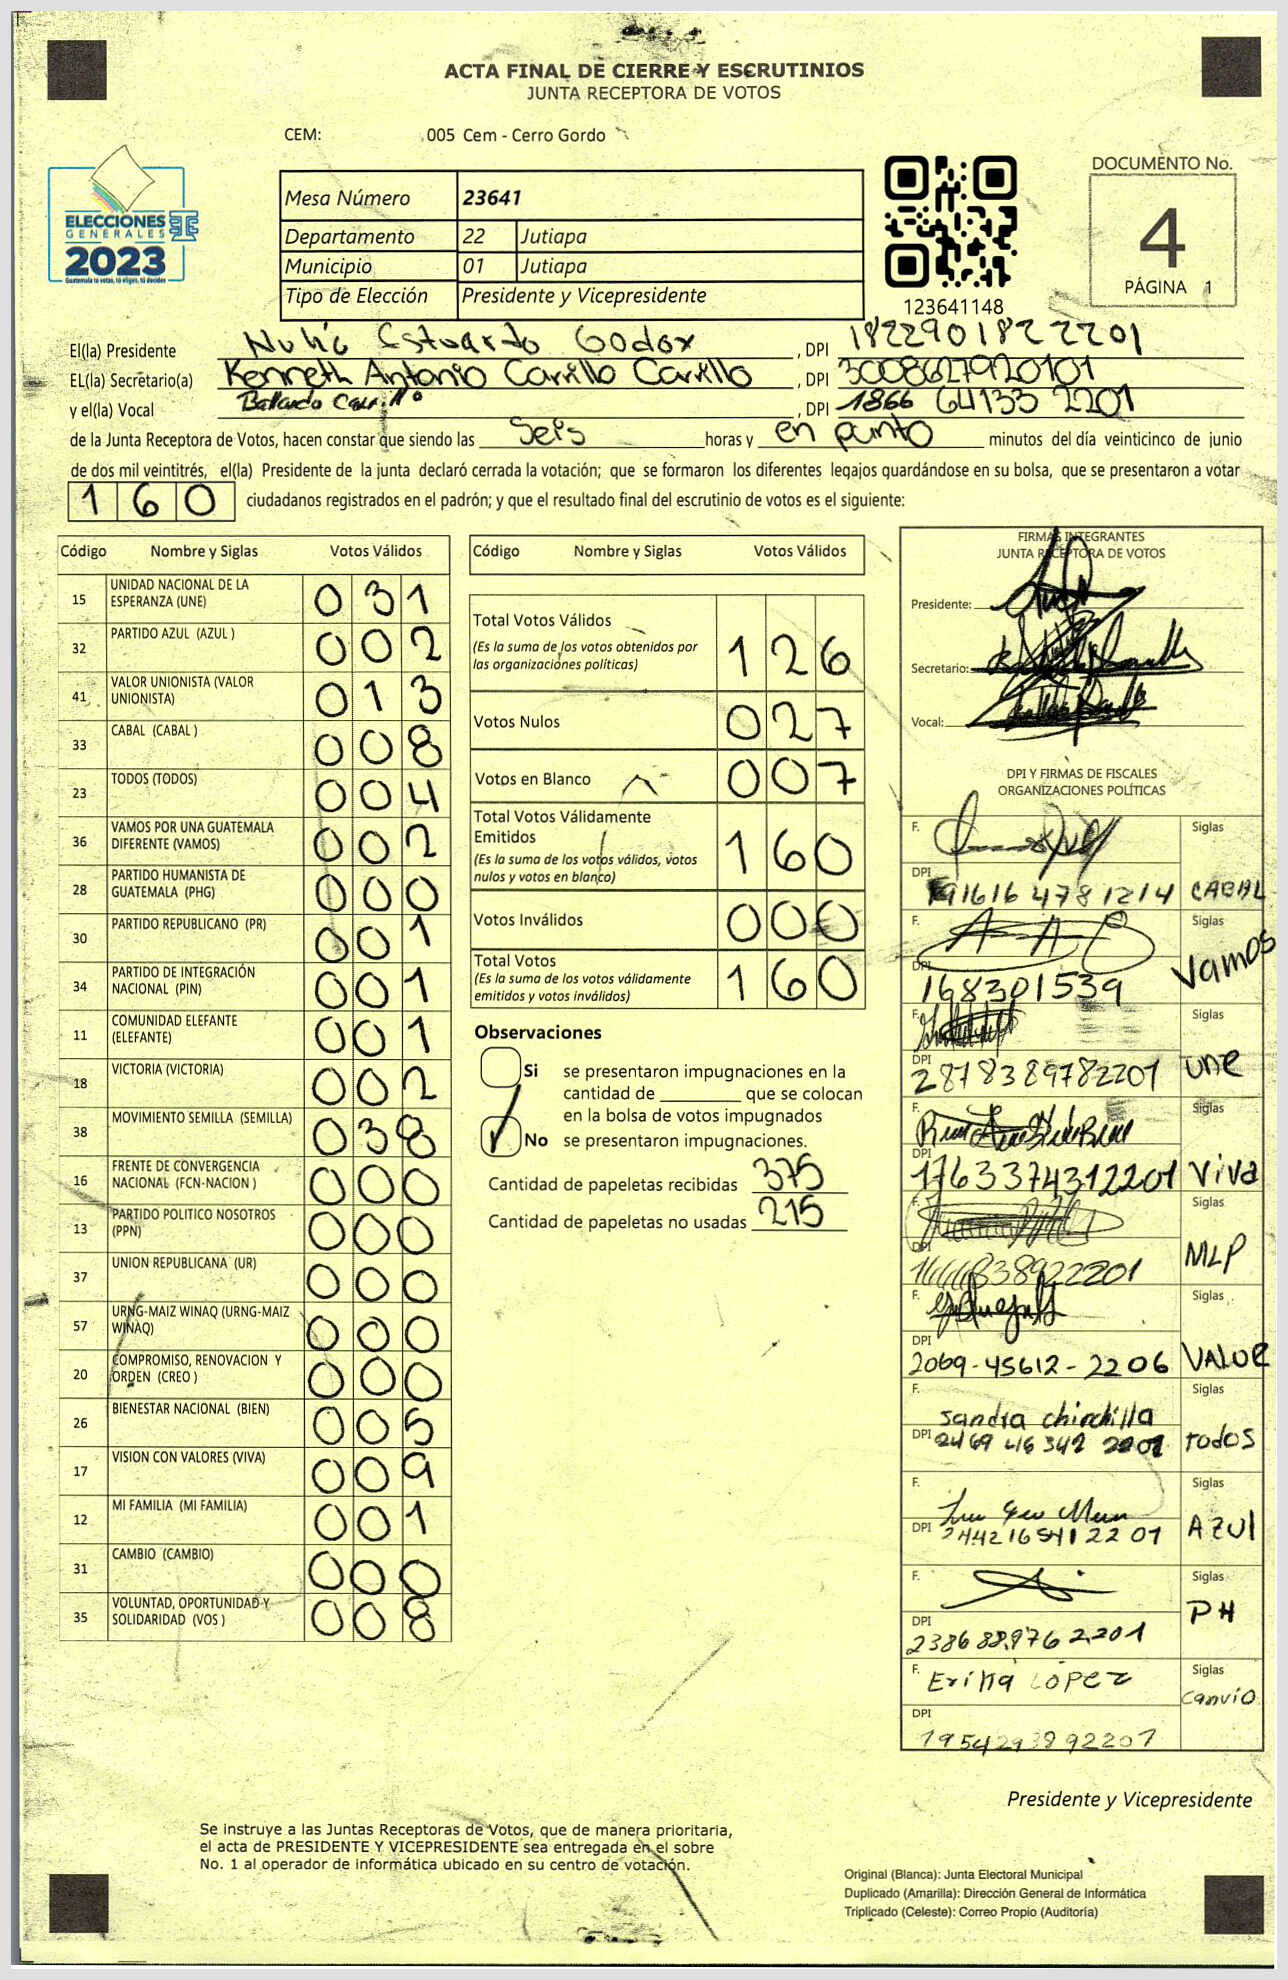 ACTA FINAL DE CIERRE Y ESCRUTINIOS
JUNTA RECEPTORA DE VOTOS
CEM: 005 Cem - Cerro Gordo
ELECCIONES
GENERALES
2023
Guatemala tú votas, tú eliges, tú decides
Mesa Número 23641
Departamento 22 Jutiapa
Municipio 01 Jutiapa
Tipo de Elección Presidente y Vicepresidente
123641148
DOCUMENTO No.
4
PÁGINA 1
El(la) Presidente Estuardo Godox , DPI 1822901822201
EL(la) Secretario(a) Kenneth Antonio Carrillo Carrillo , DPI 3008627920101
y el(la) Vocal Carrillo , DPI 1866 64133 2201
de la Junta Receptora de Votos, hacen constar que siendo las Seis horas y en punto minutos del día veinticinco de junio
de dos mil veintitrés, el(la) Presidente de la junta declaró cerrada la votación; que se formaron los diferentes legajos guardándose en su bolsa, que se presentaron a votar
160 ciudadanos registrados en el padrón; y que el resultado final del escrutinio de votos es el siguiente:
Código Nombre y Siglas Votos Válidos
15 UNIDAD NACIONAL DE LA ESPERANZA (UNE) 031
32 PARTIDO AZUL (AZUL ) 002
41 VALOR UNIONISTA (VALOR UNIONISTA) 013
33 CABAL (CABAL ) 008
23 TODOS (TODOS) 004
36 VAMOS POR UNA GUATEMALA DIFERENTE (VAMOS) 002
28 PARTIDO HUMANISTA DE GUATEMALA (PHG) 000
30 PARTIDO REPUBLICANO (PR) 001
34 PARTIDO DE INTEGRACIÓN NACIONAL (PIN) 001
11 COMUNIDAD ELEFANTE (ELEFANTE) 001
18 VICTORIA (VICTORIA) 002
38 MOVIMIENTO SEMILLA (SEMILLA) 038
16 FRENTE DE CONVERGENCIA NACIONAL (FCN-NACION ) 000
13 PARTIDO POLITICO NOSOTROS (PPN) 000
37 UNION REPUBLICANA (UR) 000
57 URNG-MAIZ WINAQ (URNG-MAIZ WINAQ) 000
20 COMPROMISO, RENOVACION Y ORDEN (CREO ) 000
26 BIENESTAR NACIONAL (BIEN) 005
17 VISION CON VALORES (VIVA) 009
12 MI FAMILIA (MI FAMILIA) 001
31 CAMBIO (CAMBIO) 000
35 VOLUNTAD, OPORTUNIDAD Y SOLIDARIDAD (VOS ) 008
Código Nombre y Siglas Votos Válidos
Total Votos Válidos 126
(Es la suma de los votos obtenidos por
las organizaciones políticas)
Votos Nulos 027
Votos en Blanco 007
Total Votos Válidamente
Emitidos 160
(Es la suma de los votos válidos, votos
nulos y votos en blanco)
Votos Inválidos 000
Total Votos 160
(Es la suma de los votos válidamente
emitidos y votos inválidos)
Observaciones
Si se presentaron impugnaciones en la
cantidad de ________ que se colocan
en la bolsa de votos impugnados
No se presentaron impugnaciones.
Cantidad de papeletas recibidas 375
Cantidad de papeletas no usadas 215
FIRMAS INTEGRANTES
JUNTA RECEPTORA DE VOTOS
Presidente:
Secretario:
Vocal:
DPI Y FIRMAS DE FISCALES
ORGANIZACIONES POLÍTICAS
F. Siglas
DPI 1916164781214 CABAL
F. Siglas
DPI 168301539 Vamos
F. Siglas
DPI 2878389782201 une
F. Siglas
DPI 1763374312201 Viva
F. Siglas
DPI MLP
F. Siglas
DPI 2069-45612-2206 VALOR
F. Sandra Chinchilla Siglas
DPI 2469 416342 2201 todos
F. Siglas
DPI 2442165412201 AZUl
F. Siglas
DPI 2386889762201 PH
F. Erika LOPEZ Siglas
DPI 1954293892201 canvio
Presidente y Vicepresidente
Se instruye a las Juntas Receptoras de Votos, que de manera prioritaria,
el acta de PRESIDENTE Y VICEPRESIDENTE sea entregada en el sobre
No. 1 al operador de informática ubicado en su centro de votación.
Original (Blanca): Junta Electoral Municipal
Duplicado (Amarilla): Dirección General de Informática
Triplicado (Celeste): Correo Propio (Auditoría)